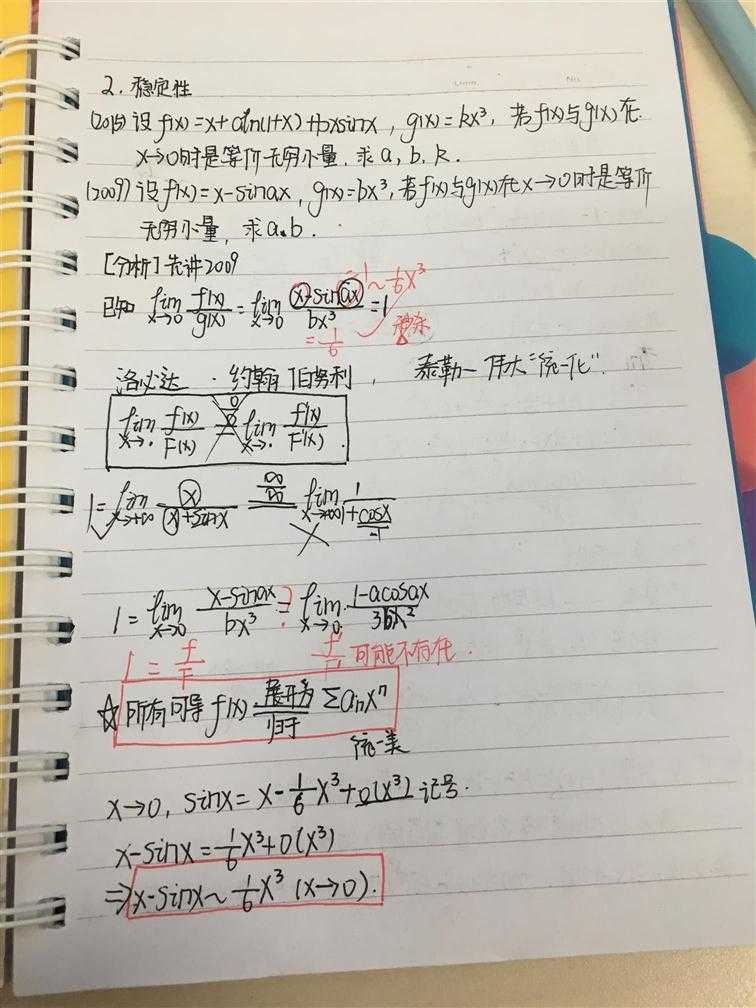 2. 稳定性
(2015) 设 f(x)=x+aln(1+x)+bxsinx, g(x)=kx³, 若f(x)与g(x)在
x→0时是等价无穷小量, 求a, b, k.
(2009) 设f(x)=x-sinax, g(x)=bx³, 若f(x)与g(x)在x→0时是等价
无穷小量, 求a、b.
[分析] 先讲2009
已知 lim x→0 f(x)/g(x) = lim x→0 (x-sinax)/bx³ = 1
1 ~ 1/6 x³
= 1/6
洛必达 · 约翰 伯努利, 泰勒—伟大"统一化".
lim x→· f(x)/F(x) = 0/0 lim x→· f'(x)/F'(x).
1 = lim x→+∞ x/(x+sinx) = ∞/∞ lim x→+∞ 1/(1+cosx)
1 = lim x→0 (x-sinax)/bx³ =? lim x→0 (1-acosax)/3bx²
1 = f/F f'/F' 可能不存在.
☆ 所有可导 f(x) 展开为/归于 Σaₙxⁿ
统一美
x→0, sinx = x - 1/6 x³ + o(x³) 记号.
x-sinx = 1/6 x³ + o(x³)
⇒ x-sinx ~ 1/6 x³ (x→0).